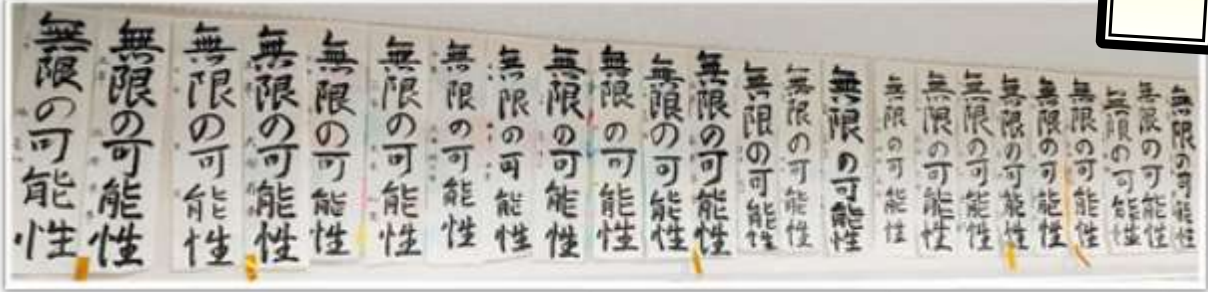 無限の可能性
無限の可能性
無限の可能性
無限の可能性
無限の可能性
無限の可能性
無限の可能性
無限の可能性
無限の可能性
無限の可能性
無限の可能性
無限の可能性
無限の可能性
無限の可能性
無限の可能性
無限の可能性
無限の可能性
無限の可能性
無限の可能性
無限の可能性
無限の可能性
無限の可能性
無限の可能性
無限の可能性